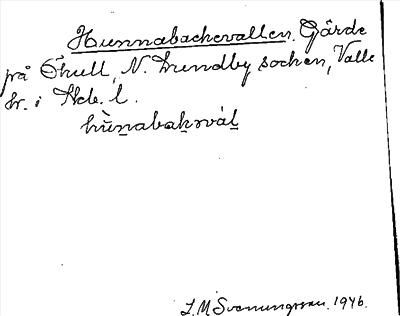 Hunnabackevallen. Gärde
på Skull, N. Lundby socken, Valle
hr. i Skb. l.
hùnabakəvál
L M Svenungsson. 1946.